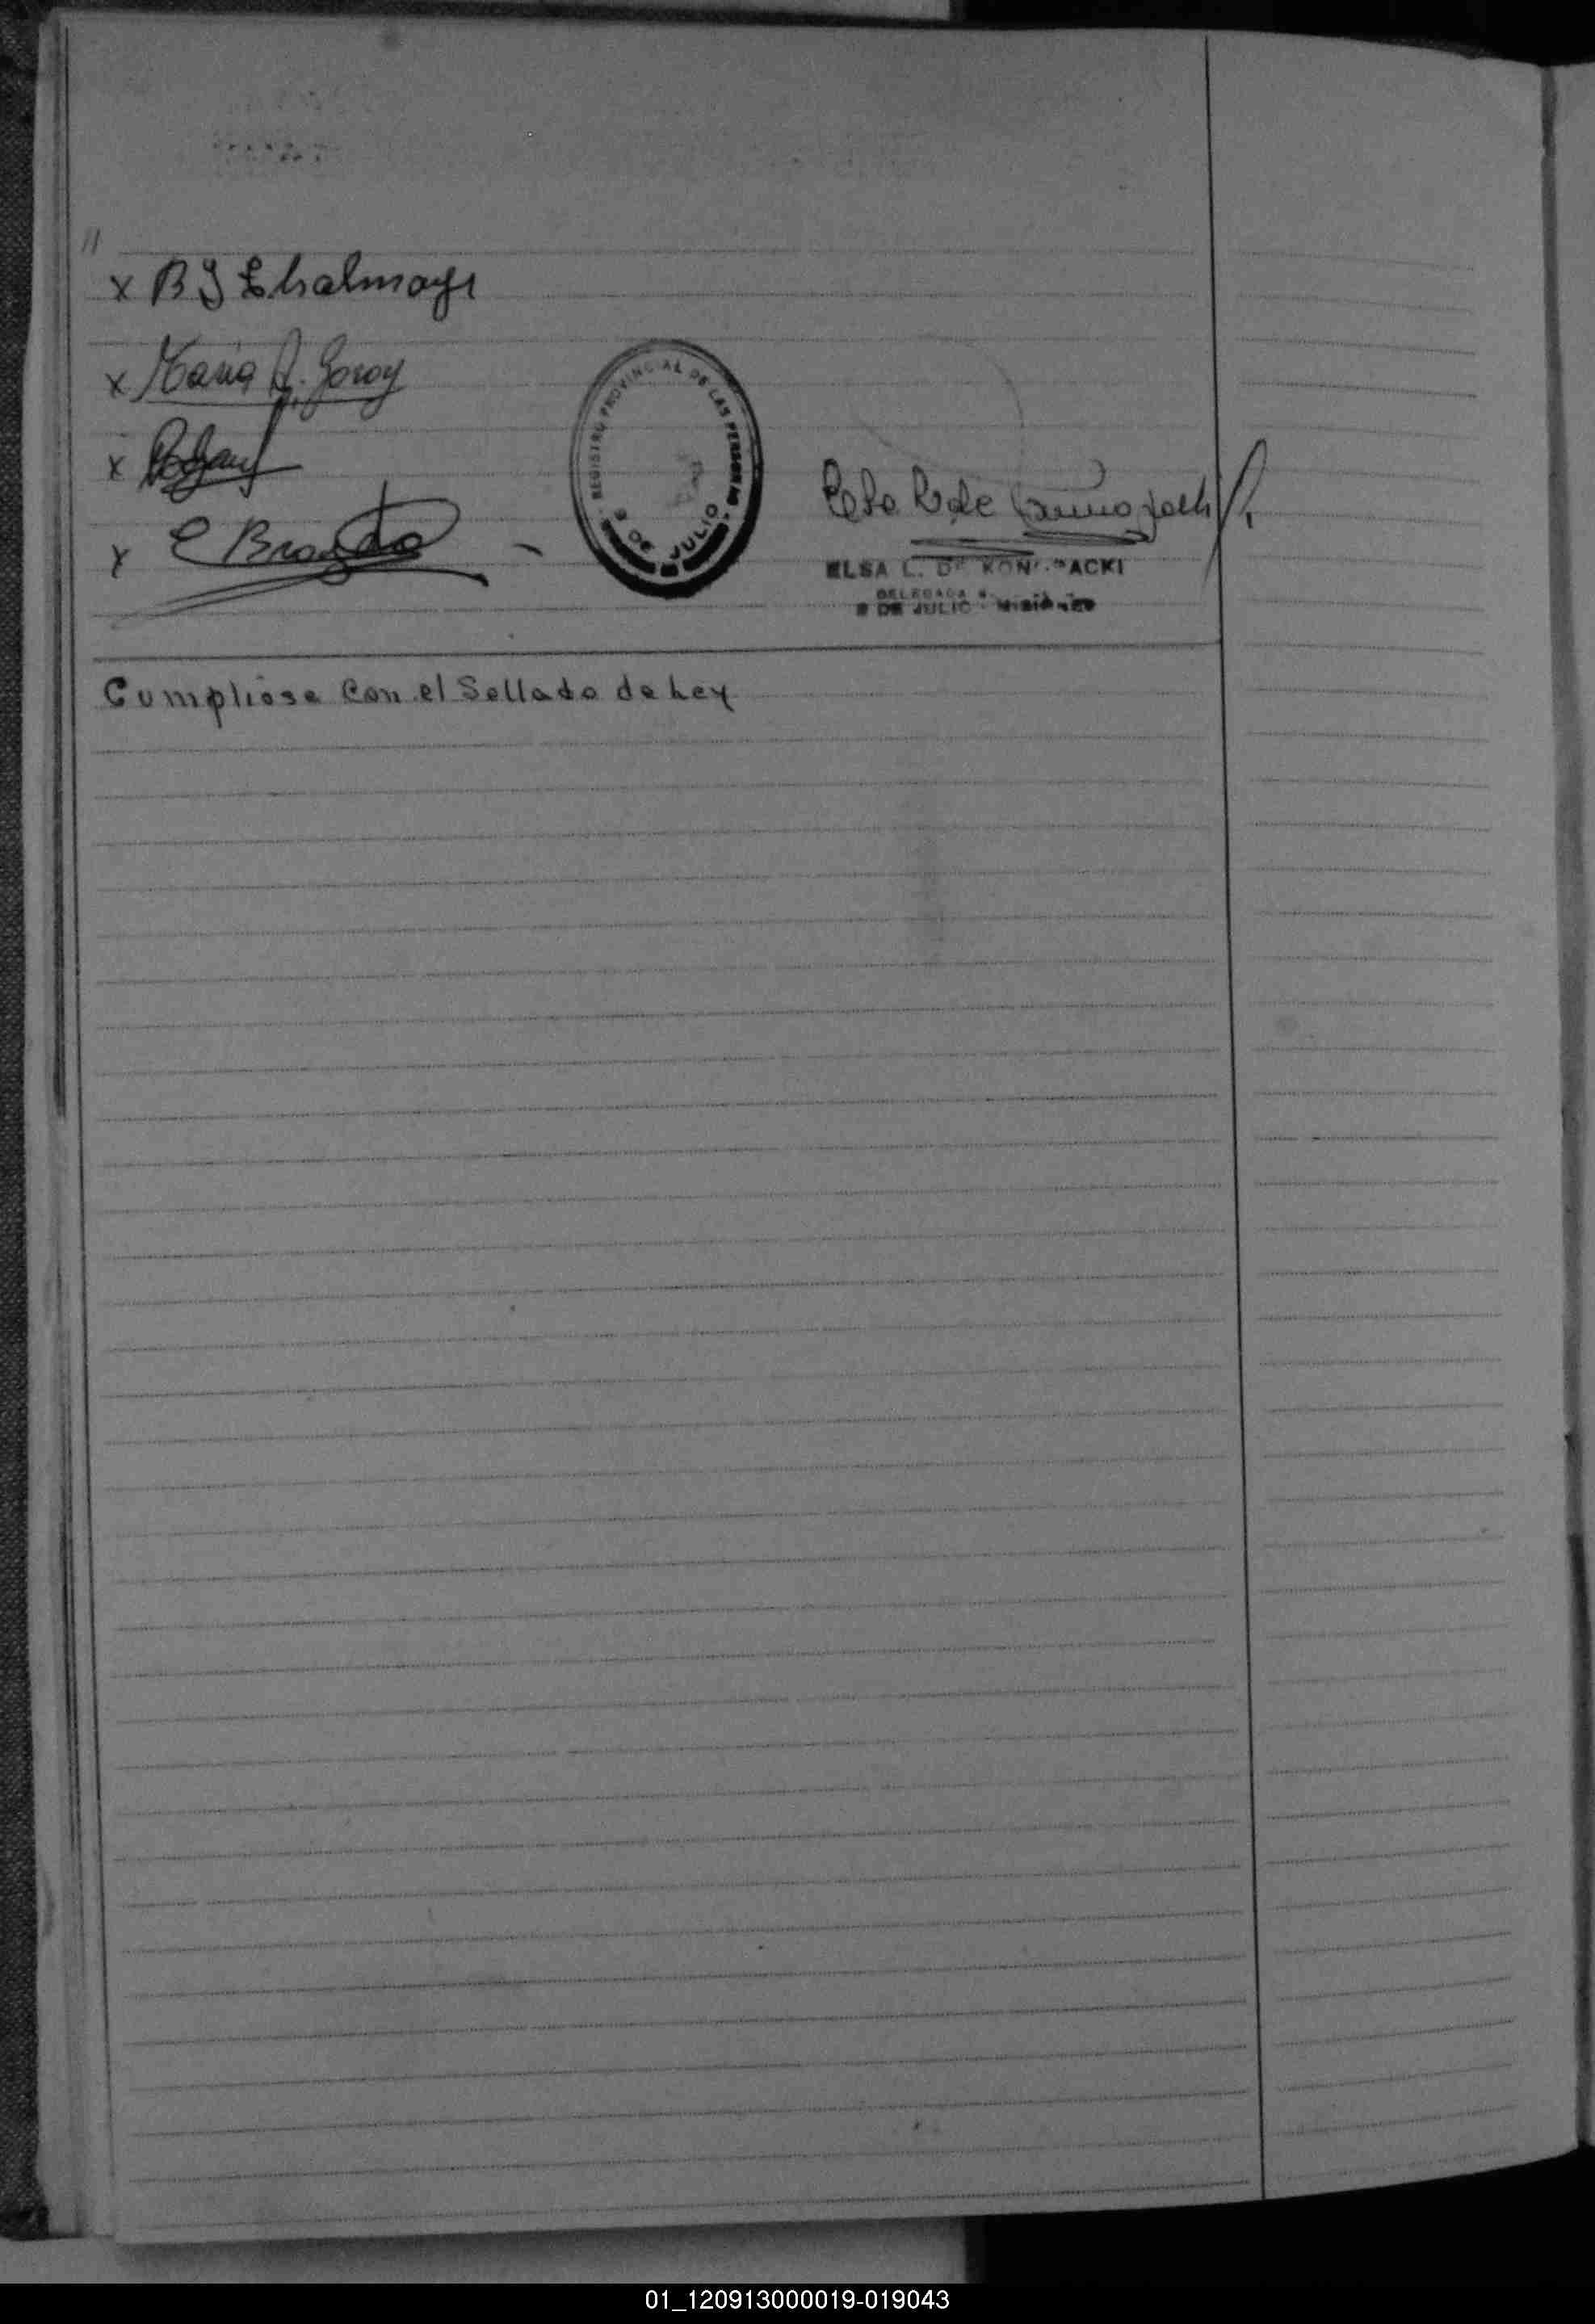 "
x B J Ehalmayr
x Maria A. Goroy
x
x E Brando
REGISTRO PROVINCIAL DE LAS PERSONAS
9 DE JULIO
ELSA L. DE
DELEGADA
9 DE JULIO - Misiones
Cumpliose Con el Sellado de Ley
01_120913000019-019043